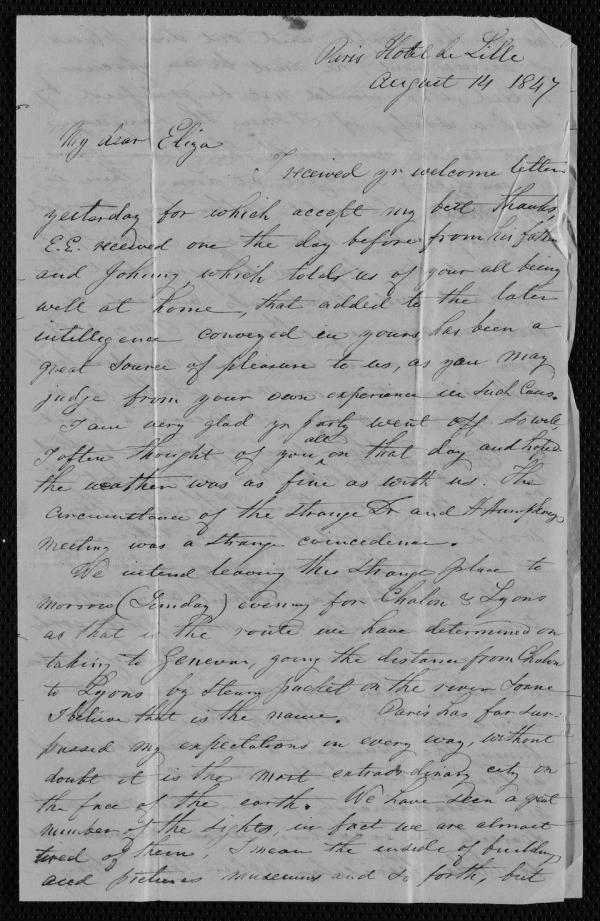 Paris Hotel de Lille
August 14 1847
My dear Eliza
I received yr welcome letter
yesterday for which accept my best thanks,
E.E. received one the day before from his father
and Johnny which told us of your all being
well at home, that added to the later
intelligence conveyed in yours has been a
great source of pleasure to us, as you may
judge from your own experience in such cases.
I am very glad yr party went off so well,
I often thought of you all on that day and hoped
the weather was as fine as with us. The
circumstance of the strange Dr and H Humphreys
meeting was a strange coincedence.
We intend leaving this strange place to
morrow (Sunday) evening for Chalon & Lyons
as that is the route we have determined on
taking to Geneva, going the distance from Chalon
to Lyons by steam packet on the river Sonne
I believe that is the name. Paris has far sur-
passed my expectations in every way, without
doubt it is the most extraordinary city on
the face of the earth. We have seen a great
number of the sights, in fact we are almost
tired of them, I mean the inside of buildings
and pictures museums and so forth, but